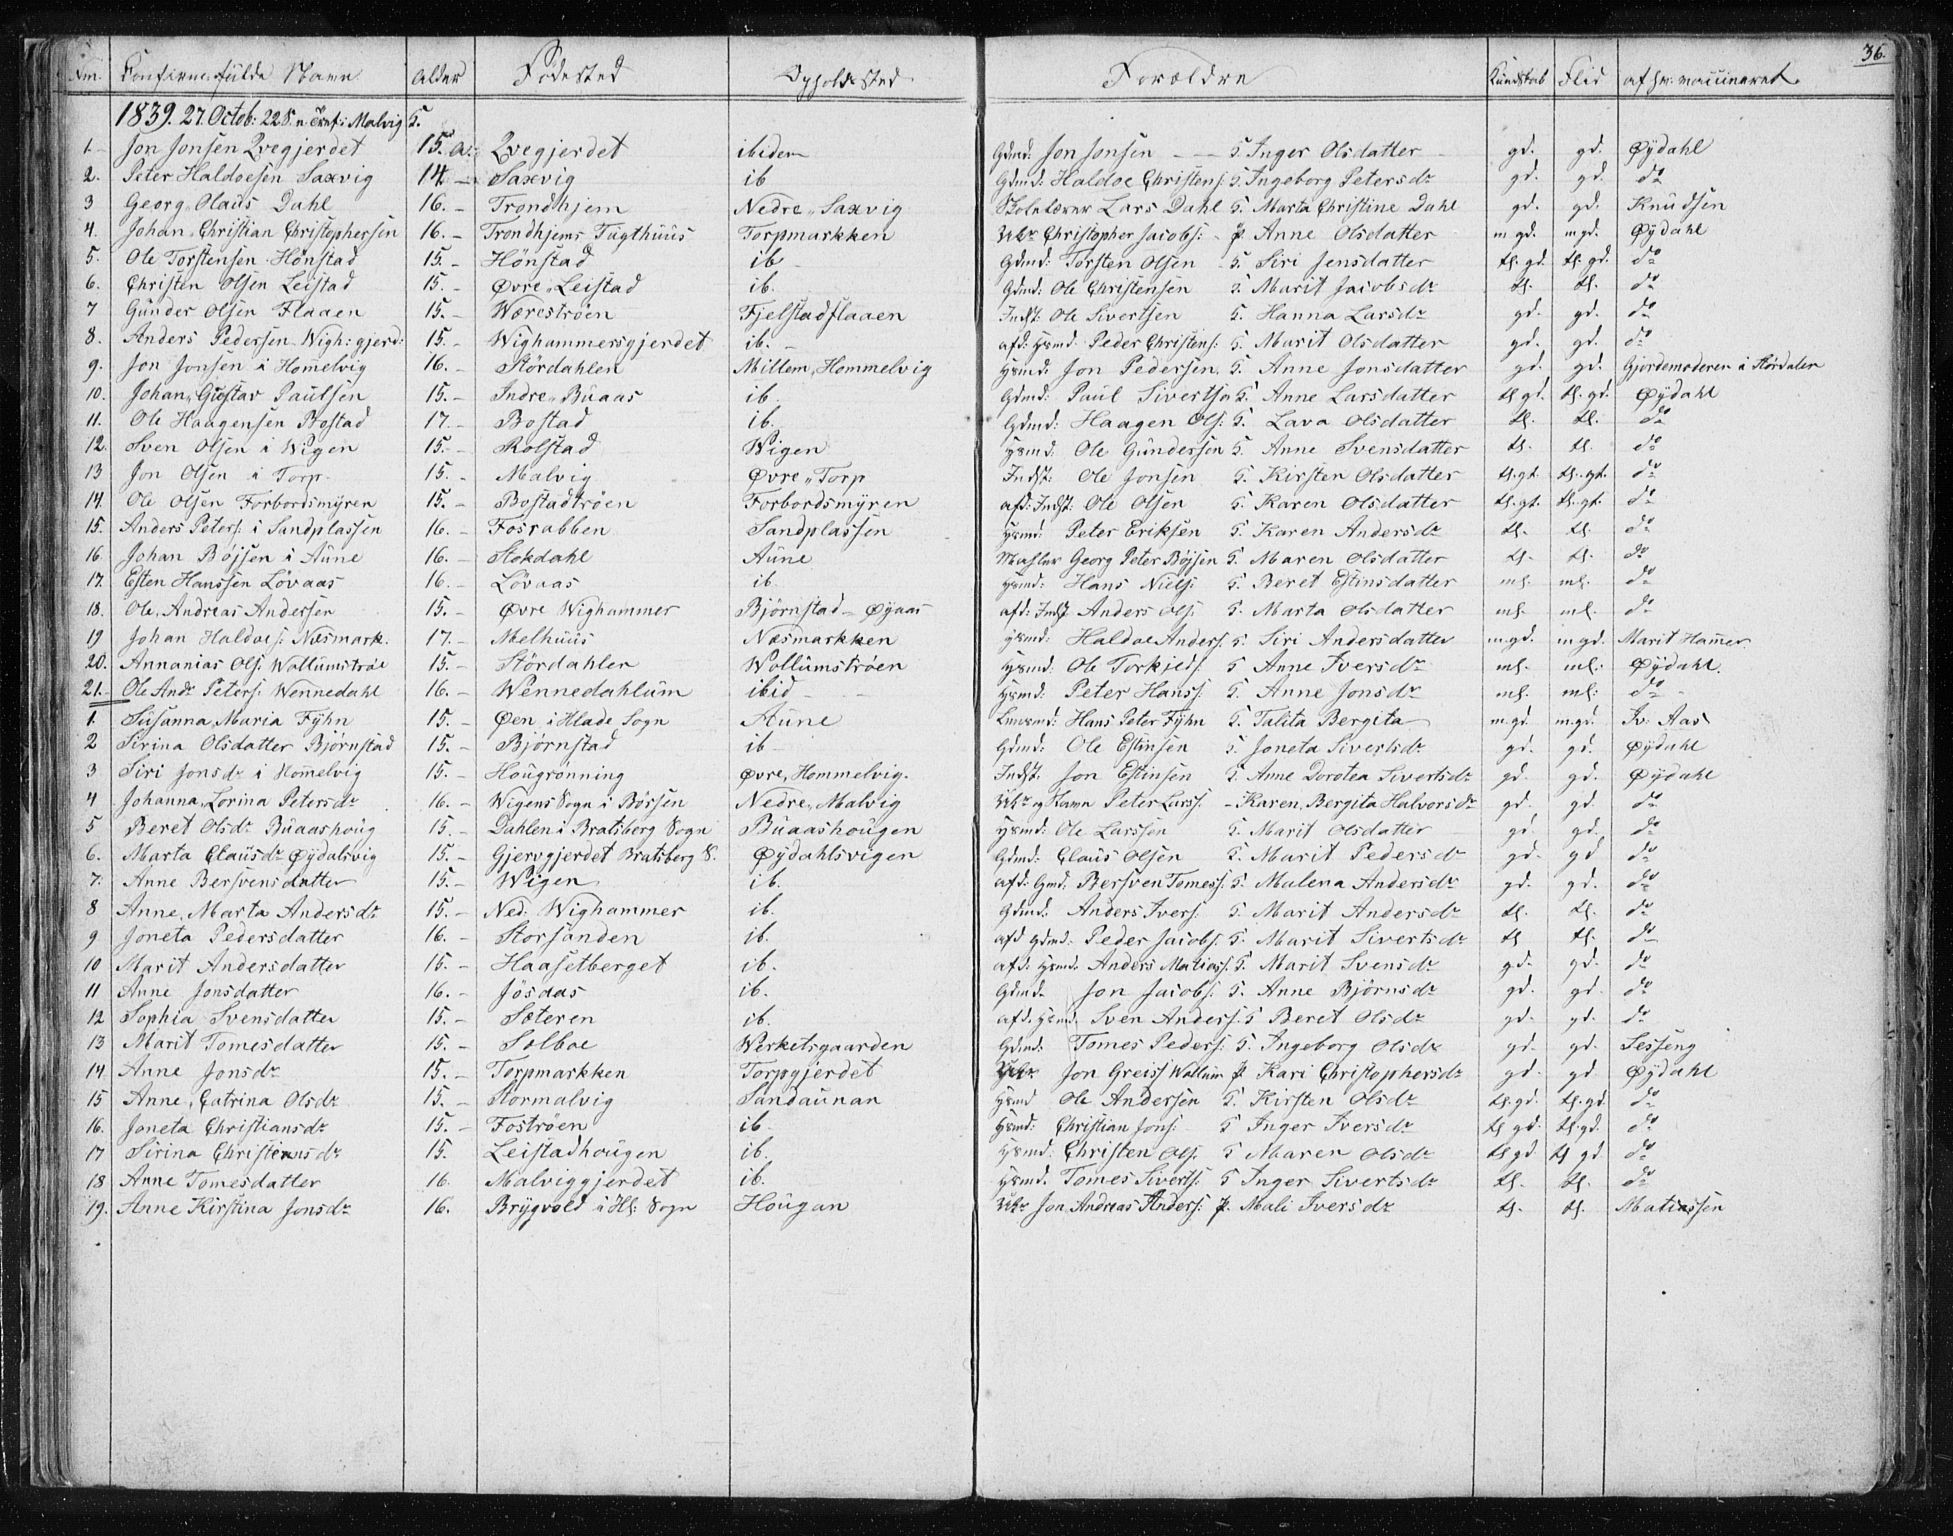 36.
Nm. Confirm: fulde Navn Alder Fødested Opholdssted Forældre Kundskab Flid af hv: vaccineret
1839. 27. Octob: 22 S. n. Tref: i Malvig K.
1. Jon Jonsen Qvegjerdet 15. a. Qvegjerdet ibidem Gdmd: Jon Jonsen - - K. Inger Olsdatter gd. gd. Øydahl
2. Peter Haldoesen Saxvig 14 - Saxvig ib Gdmd: Haldoe Christens: K. Ingeborg Petersdr gd. gd. do
3 Georg Olaus Dahl 16. - Trondhjem Nedre Saxvig Skolelærer Lars Dahl K. Marta Christine Dahl gd. gd. Knudsen
4. Johan Christian Christophersen 16. - Trondhjems Tugthuus Torpmarkken Ukr Christopher Jacobs: - p. Anne Olsdatter m gd. m gd. Øydahl
5. Ole Torstensen Hønstad 15. - Hönstad ib - Gdmd: Torsten Olsen - K. Siri Jensdatter tl. gd. tl. gd. do
6. Christen Olsen Leistad 15. - Øvre Leistad ib. Gdmd: Ole Christensen K. Marit Jacobsdr tl. tl. do
7 Gunder Olsen Flaaen 15. - Wæreströen Fjelstadflaaen Indst: Ole Sivertsen K. Hanna Larsdr gd. gd. do
8. Anders Pedersen Wigh: gjerd: 15. - Wighammersgjerdet ib. - afd: Hsmd: Peder Christens: K. Marit Olsdatter gd. gd. do
9. Jon Jonsen i Homelvig 16. - Stördahlen Millem Hommelvig Hsmd: Jon Pedersen K. Anne Jonsdatter gd. gd. Gjordemoderen i Stördalen
10. Johan Gustav Paulsen 15. - Indre Buaas ib. Gdmd: Paul Sivertsen K. Anne Larsdatter tl gd. tl. gd. Øydahl
11. Ole Haagensen Bostad 17. - Bostad ib. Gdmd: Haagen Ols: K. Lava Olsdatter tl. tl. do
12. Sven Olsen i Wigen 15. - Rolstad Wigen Hsmd: Ole Gundersen K. Anne Svensdatter tl. tl. do
13 Jon Olsen i Torp. 15. - Malvig Øvre Torp Indst: Ole Jonsen K. Kirsten Olsdatter tl. gt. tl. gt. do
14. Ole Olsen Forbordsmyren 15. - Bostadtröen Forbordsmyren afd: Indst: Ole Olsen K. Karen Olsdatter tl. gt. tl. gt. do
15. Anders Peters: i Sandplassen 16. - Fosrabben Sandplassen Hsmd Peter Eriksen K. Karen Andersdr tl. tl. do
16 Johan Böjsen i Aune 16. - Stokdahl Aune Mahler Georg Peter Böjsen K. Maren Olsdatter tl. tl. do
17. Esten Hanssen Lövaas 16. - Lövaas ib. Hsmd: Hans Niels: K. Beret Estinsdatter ml. ml. do
18. Ole Andreas Andersen 15. - Øvre Wighammer Björnstad - Øyaas afd: Indst Anders Ols: K. Marta Olsdatter ml. ml. do
19 Johan Haldoes: Næsmark. 17. - Melhuus Næsmarkken Hsmd: Haldoe Anders: K. Siri Andersdatter m gd. m gd. Marit Hamer
20. Annanias Ols: Wollumströe 15. - Stördahlen Wollumströen Hsmd: Ole Torkjels: K Anne Iversdr ml. ml. Øydahl.
21. Ole Andr Peters: Wennedahl 16. - Wennedahlum ibid - - Hsmd: Peter Hanss: K. Anne Jonsdr ml. ml. do -
1. Susanna Maria Fyhn 15. - Øen i Hlade Sogn Aune Hans Peter Fyhn K. Talita Bergita m. gd. m. gd. Iv: Aas
2 Sirina Olsdatter Björnstad 15. - Björnstad ib - Gdmd: Ole Estinsen K. Joneta Sivertsdr gd. gd. Øydahl
3 Siri Jonsdr i Homelvig 15. - Hougrønning Øvre Hommelvig. Indst. Jon Estinsen K. Anne Dorotea Sivertsdr gd. gd. Øydahl
4 Johanna Lorina Petersdr 16. - Wigens Sogn i Börsen Nedre Malvig Peter Larss: - Karen Bergita Halvorsdr gd. gd. do
5 Beret Olsdr Buaashoug 15. - Dahlen i Bratsberg Sogn Buaashougen Hsmd: Ole Larssen K. Marit Olsdatter gd. gd. do
6. Marta Clausdr Øydalsvig 15. - Gjervgjerdet Bratsberg S. Øydahlsvigen Gdmd: Claus Olsen K. Marit Pedersdr gd. gd do
7. Anne Bersvensdatter 15. - Wigen ib. afd: Gmd. Bersven Tomess: K. Malena Andersdr gd. gd. do
8 Anne Marta Andersdr 15. - Ned: Wighammer ib. Gdmd. Anders Ivers: K. Marit Andersdr tl. tl. do
9 Joneta Pedersdatter 16. - Storsanden ib. afd Gdmd: Peder Jacobs: K. Marit Sivertsdr tl tl. do
10 Marit Andersdatter 15. - Haasetberget ib. afd: Hsmd. Anders Matiass: K. Marit Svensdr gd. gd. do
11 Anne Jonsdatter 16. - Jösdas ib. Gdmd. Jon Jacobs: K. Anne Björnsdr gd. gd. do
12 Sophia Svensdatter 15. - Sæteren ib. afd. Hsmd. Sven Anders: K Beret Olsdr gd. gd. do
13 Marit Tomesdatter 15. - Solboe Werketsgaarden Gdmd: Tomes Peders: K. Ingeborg Olsdr gd. gd. Sesseng
14 Anne Jonsdr 15. - Torpmarkken Torpgjerdet Ukr Jon Greiss Wollum p. Kari Christophersdr gd. gd Øydahl
15 Anne Catrina Olsdr 15. - Stormalvig Sandaunan Hsmd Ole Andersen K. Kirsten Olsdr tl. gd. tl. gd do
16. Joneta Christiansdr 15. - Foströen ib. Hsmd: Christian Jons: K Inger Iversdr tl gd. tl gd. do
17 Sirina Christensdr 15. Leistadhougen ib. Hsmd: Christen Ols: K Maren Olsdr tl gd tl gd do
18 Anne Tomesdatter 16. Malviggjerdet ib. Hsmd. Tomes Siverts: K Inger Sivertsdr tl. tl. do
19. Anne Kirstina Jonsdr 16. Brygvold i Hl: Sogn Hougan Ukr Jon Andreas Anders: p. Mali Iversdr tl. tl. Matiassen